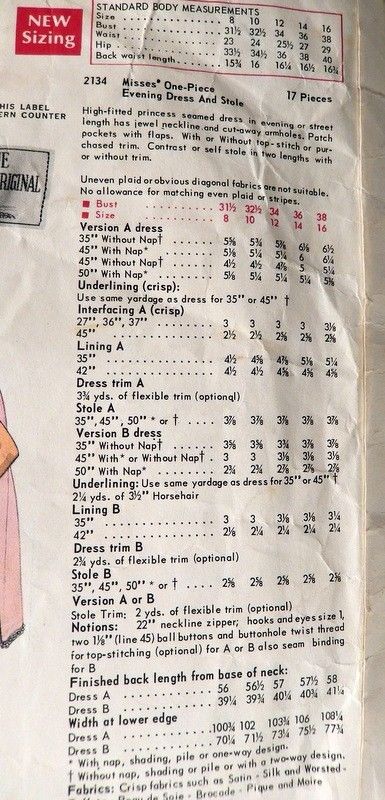 NEW
Sizing
STANDARD BODY MEASUREMENTS
Size 8 10 12 14 16
Bust 31½ 32½ 34 36 38
Waist 23 24 25½ 27 29
Hip 33½ 34½ 36 38 40
Back waist length 15¾ 16 16¼ 16½ 16¾
2134 Misses' One-Piece
Evening Dress And Stole 17 Pieces
HIS LABEL
ERN COUNTER
RIGINAL
High-fitted princess seamed dress in evening or street
length has jewel neckline and cut-away armholes. Patch
pockets with flaps. With or Without top-stitch or pur-
chased trim. Contrast or self stole in two lengths with
or without trim.
Uneven plaid or obvious diagonal fabrics are not suitable.
No allowance for matching even plaid or stripes.
■ Bust 31½ 32½ 34 36 38
■ Size 8 10 12 14 16
Version A dress
35" Without Nap† 5⅝ 5¾ 5⅞ 6⅛ 6½
45" With Nap* 5⅛ 5¼ 5¼ 6 6¼
45" Without Nap† 4½ 4½ 4⅞ 5 5¼
50" With Nap* 5⅛ 5¼ 5¼ 5¼ 5¼
Underlining (crisp):
Use same yardage as dress for 35" or 45" †
Interfacing A (crisp)
27", 36", 37" 3 3 3 3 3⅛
45" 2½ 2½ 2⅝ 2⅝ 2⅝
Lining A
35" 4½ 4⅝ 4⅞ 5⅛ 5¼
42" 4½ 4½ 4⅝ 4⅝ 4⅝
Dress trim A
3¾ yds. of flexible trim (optional)
Stole A
35", 45", 50" * or † 3⅞ 3⅞ 3⅞ 3⅞ 3⅞
Version B dress
35" Without Nap† 3⅝ 3⅝ 3¾ 3⅞ 3⅞
45" With* or Without Nap† 3 3 3⅛ 3⅛ 3⅜
50" With Nap* 2¾ 2¾ 2⅞ 2⅞ 2⅞
Underlining: Use same yardage as dress for 35" or 45" †
2¼ yds. of 3½" Horsehair
Lining B
35" 3 3 3⅛ 3⅛ 3¼
42" 2⅛ 2¼ 2¼ 2¼ 2¼
Dress trim B
2¾ yds. of flexible trim (optional)
Stole B
35", 45", 50" * or † 2⅝ 2⅝ 2⅝ 2⅝ 2⅝
Version A or B
Stole Trim: 2 yds. of flexible trim (optional)
Notions: 22" neckline zipper; hooks and eyes size 1,
two 1⅛" (line 45) ball buttons and buttonhole twist thread
for top-stitching (optional) for A or B also seam binding
for B
Finished back length from base of neck:
Dress A 56 56½ 57 57½ 58
Dress B 39¼ 39¾ 40¼ 40¾ 41¼
Width at lower edge
Dress A 100¾ 102 103¾ 106 108¼
Dress B 70¼ 71½ 73¼ 75½ 77¾
* With nap, shading, pile or one-way design.
† Without nap, shading or pile or with a two-way design.
Fabrics: Crisp fabrics such as Satin - Silk and Worsted-
Peau de Soie - Brocade - Pique and Moire